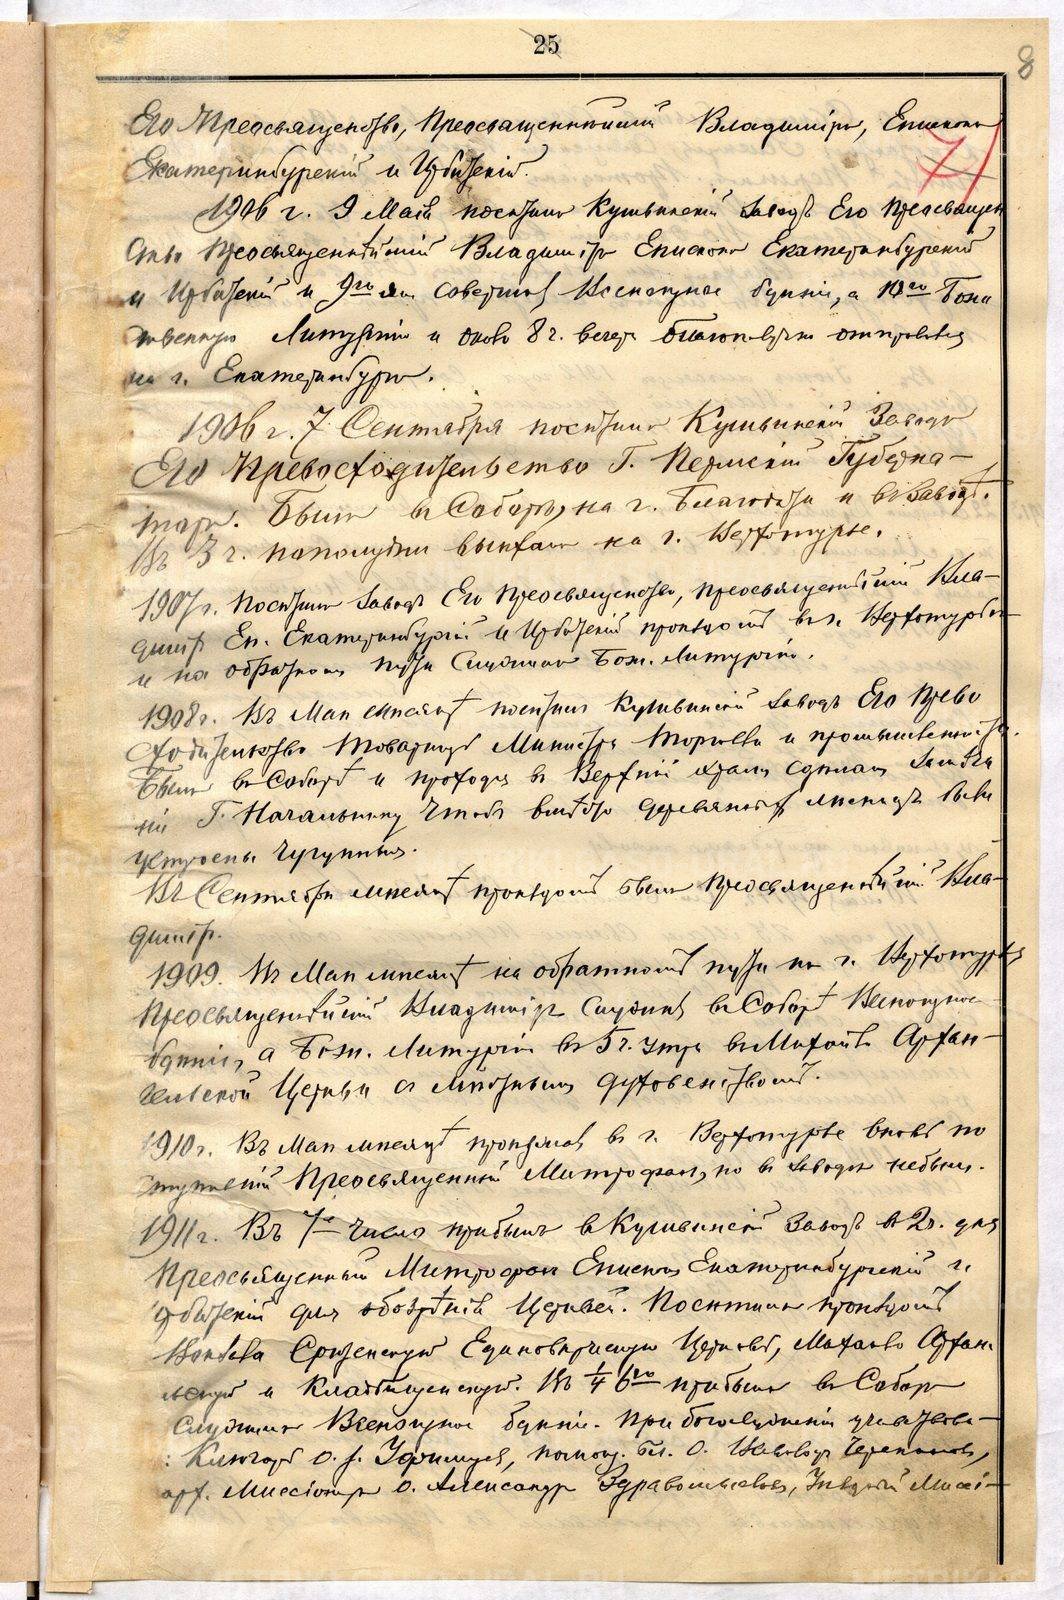 25
8
71
Его Преосвященство, Преосвященнѣйшій Владиміръ, Епископъ
Екатеринбургскій и Ирбитскій.
1906 г. 9 Маія посѣтилъ Кушвинскій Заводъ Его Преосвящен
ство Преосвященнѣйшій Владиміръ Епископъ Екатеринбургскій
и Ирбитскій и 9го мая совершилъ Всенощное бдѣніе, а 10го Боже
ственную Литургію и около 8 г. вечера благополучно отправился
на г. Екатеринбургъ.
1906 г. 7 Сентября посѣтилъ Кушвинскій Заводъ
Его Превосходительство Г. Пермскій Губерна-
торъ. Былъ въ Соборѣ, на г. Благодати и въ Заводѣ.
Въ 3 г. пополудни выѣхалъ на г. Верхотурье.
1907 г. Посѣтилъ Заводъ Его Преосвященство, Преосвященнѣйшій Вла-
диміръ Еп. Екатеринбургскій и Ирбитскій проѣздомъ въ г. Верхотурье
и на обратномъ пути Служилъ Бож. Литургію.
1908 г. Въ Маѣ мѣсяцѣ посѣтилъ Кушвинскій Заводъ Его Прево
сходительство Товарищъ Министра Торговли и промышленности.
Былъ въ Соборѣ и проходя въ Верхній храмъ сдѣлалъ
Г. Начальнику чтобъ вмѣсто деревянной лѣстницы была
устроена чугунная.
Въ Сентябрѣ мѣсяцѣ проѣздомъ былъ Преосвященнѣйшій Вла-
диміръ.
1909. Въ Маѣ мѣсяцѣ на обратномъ пути изъ г. Верхотурья
Преосвященнѣйшій Владиміръ Служилъ въ Соборѣ Всенощное
бдѣніе, а Бож. Литургію въ 5 г. утра въ Михайло Архан-
гельской Церкви съ мѣстнымъ духовенствомъ.
1910 г. Въ Маѣ мѣсяцѣ проѣзжалъ въ г. Верхотурье вновь по
ступившій Преосвященный Митрофанъ, но въ Заводѣ не былъ.
1911 г. Въ 7е число прибылъ въ Кушвинскій Заводъ въ 2 г. дня
Преосвященный Митрофанъ Епископъ Екатеринбургскій и
Ирбитскій для обозрѣнія Церквей. Посѣтилъ проѣздомъ
Срѣтенскую Единовѣрческую Церковь, Михайло Архан
гельскую и Кладбищенскую. Въ 1/4 6го прибылъ въ Соборъ
Служилъ Всенощное бдѣніе. При богослуженіи участвова-
ли: Ключарь о. І. помощ. Бл. О. Черепановъ,
арх. Миссіонеръ о. Александръ Здравомысловъ, Уѣздный Миссі-